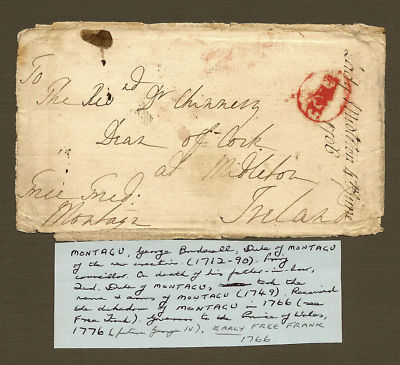 To
The Rev.d Dr Chinnery
Dean of Cork
at Midleton
Ireland
Free Fred
Montagu
FREE
Lady Midleton
1766
MONTAGU, George Brudenell, Duke of MONTAGU
of the new creation (1712-90). Privy
councillor. On death of his father-in-law,
2nd. Duke of MONTAGU, took the
name & arms of MONTAGU (1749). Received
the dukedom of MONTAGU in 1766 (see
Free Frank). Governor to the Prince of Wales,
1776 (future George IV). EARLY FREE FRANK
1766.